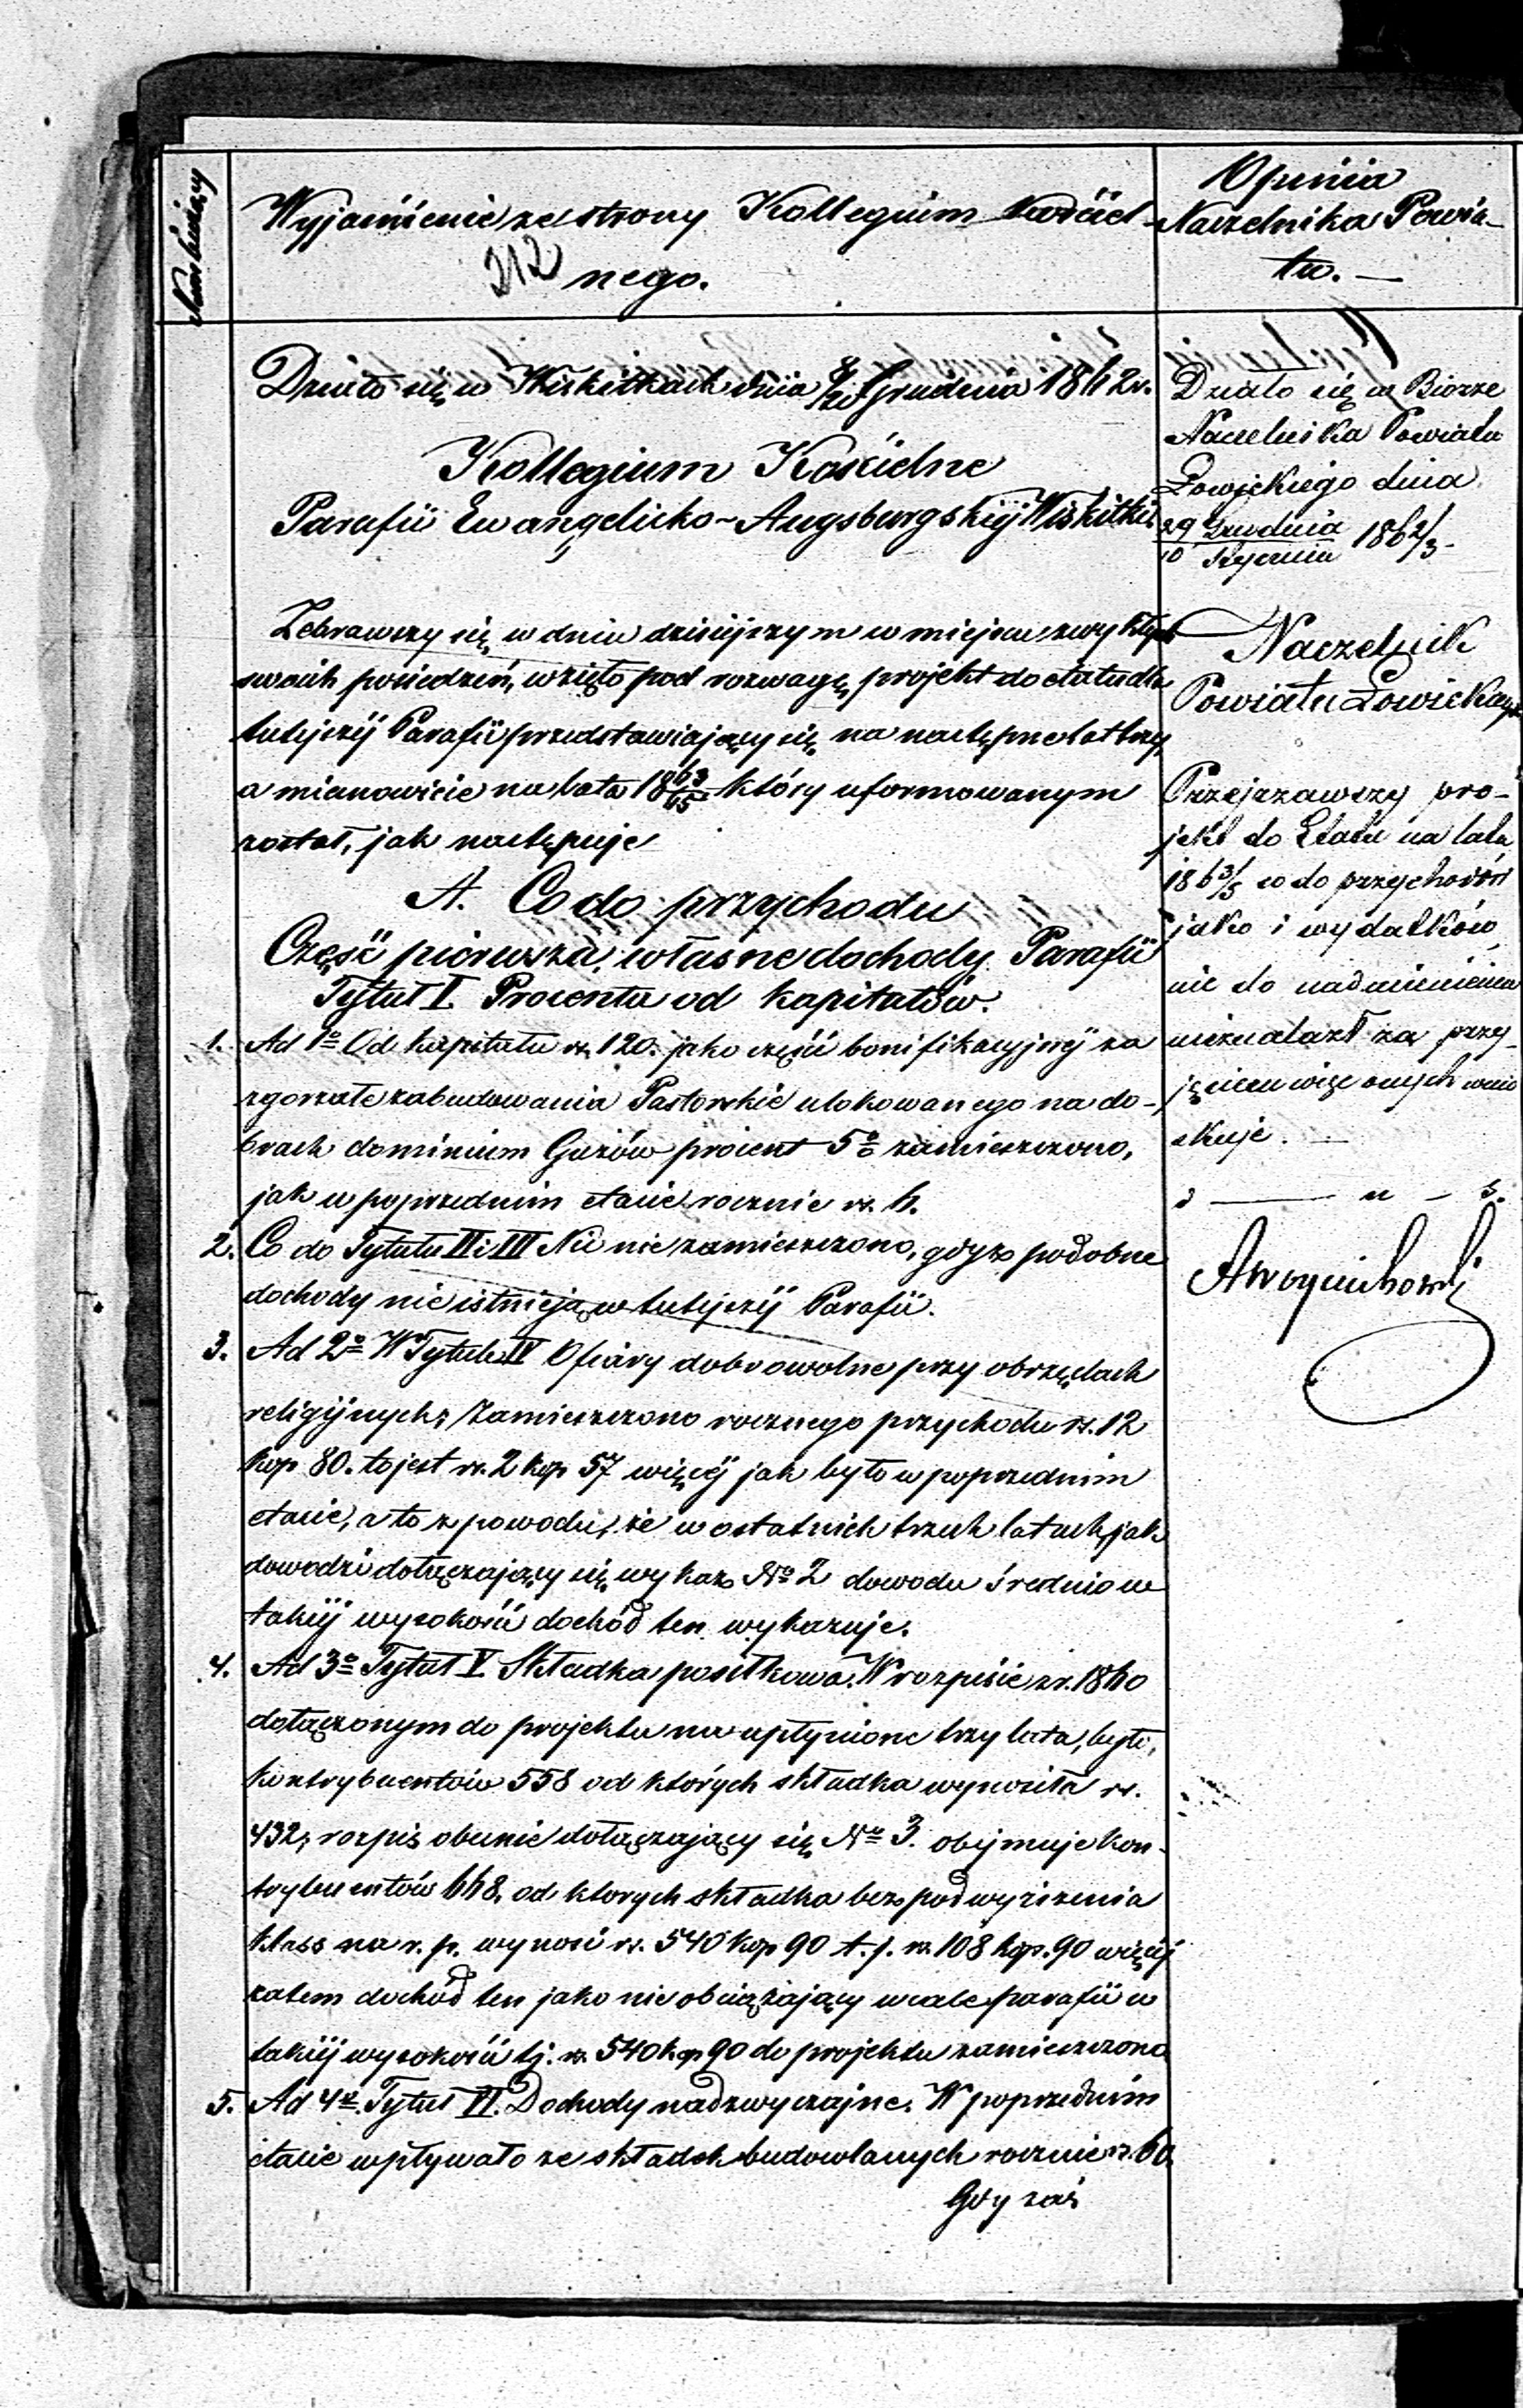 Num bieżący
Wyjaśnienie ze strony Kollegium Kościel-
nego.
312
Opinia
Naczelnika Powia-
tu. —
Działo się w Wiskitkach dnia 8/20 Grudnia 1862 r.
Kollegium Kościelne
Parafii Ewangelicko-Augsburgskiéj Wiskitki
Zebrawszy się w dniu dzisiejszym w miejscu zwykłych
swoich posiedzeń, wzięto pod rozwagę projekt do etatu dla
tutejszéj Parafii przedstawiający się na następne lat trzy,
a mianowicie na lata 1863/65 który uformowanym
został, jak następuje
A. Co do przychodu
Część piérwsza, własne dochody Parafii
Tytuł I. Procenta od kapitałów.
1. Ad 1o Od kapitału rs. 120. jako część bonifikacyjnéj za
zgorzałe zabudowania Pastorskie ulokowanego na do-
brach dominium Guzów procent 5% zamieszczono,
jak w poprzednim etacie rocznie rs. 6.
2. Co do Tytułu II i III Nic nie zamieszczono, gdyż podobne
dochody nie istnieją w tutejszéj Parafii.
3. Ad 2o W Tytule IV Ofiary dobrowolne przy obrzędach
religijnych; Zamieszczono rocznego przychodu rs. 12
kop 80. to jest rs. 2 kop 57 więcéj jak było w poprzednim
etacie, a to z powodu, że w ostatnich trzech latach, jak
dowodzi dołączający się wykaz No 2 dowodu średnio w
takiéj wysokości dochód ten wykazuje.
4. Ad 3o Tytuł V. Składka posiłkowa. W rozpisie z r. 1860
dołączonym do projektu na upłynione trzy lata, było,
kontrybuentów 558 od których składka wynosiła rs.
432; rozpis obecnie dołączający się No 3. obejmuje kon-
trybuentów 668, od ktorych składka bez podwyższenia
klass na r. p. wynosi rs. 540 kop 90 t. j. rs. 108 kop. 90 więcéj
zatem dochód ten jako nie obciążający wcale parafii w
takiéj wysokości tj. rs. 540 kop 90 do projektu zamieszczono
5. Ad 4o. Tytuł VI. Dochody nadzwyczajne. W poprzednim
etacie wpływało ze składek budowlanych rocznie rs. 60.
Gdy zaś
Działo się w Biórze
Naczelnika Powiatu
Łowickiego dnia
29 Grudnia
10 Stycznia 1862/3.
Naczelnik
Powiatu Łowickiego
Przejrzawszy pro-
jekt do Etatu na lata
1863/5 co do przychodów
jako i wydatków
nic do nadmienienia
nieznalazł za przy-
jęciem więc onych wnio
skuje. —